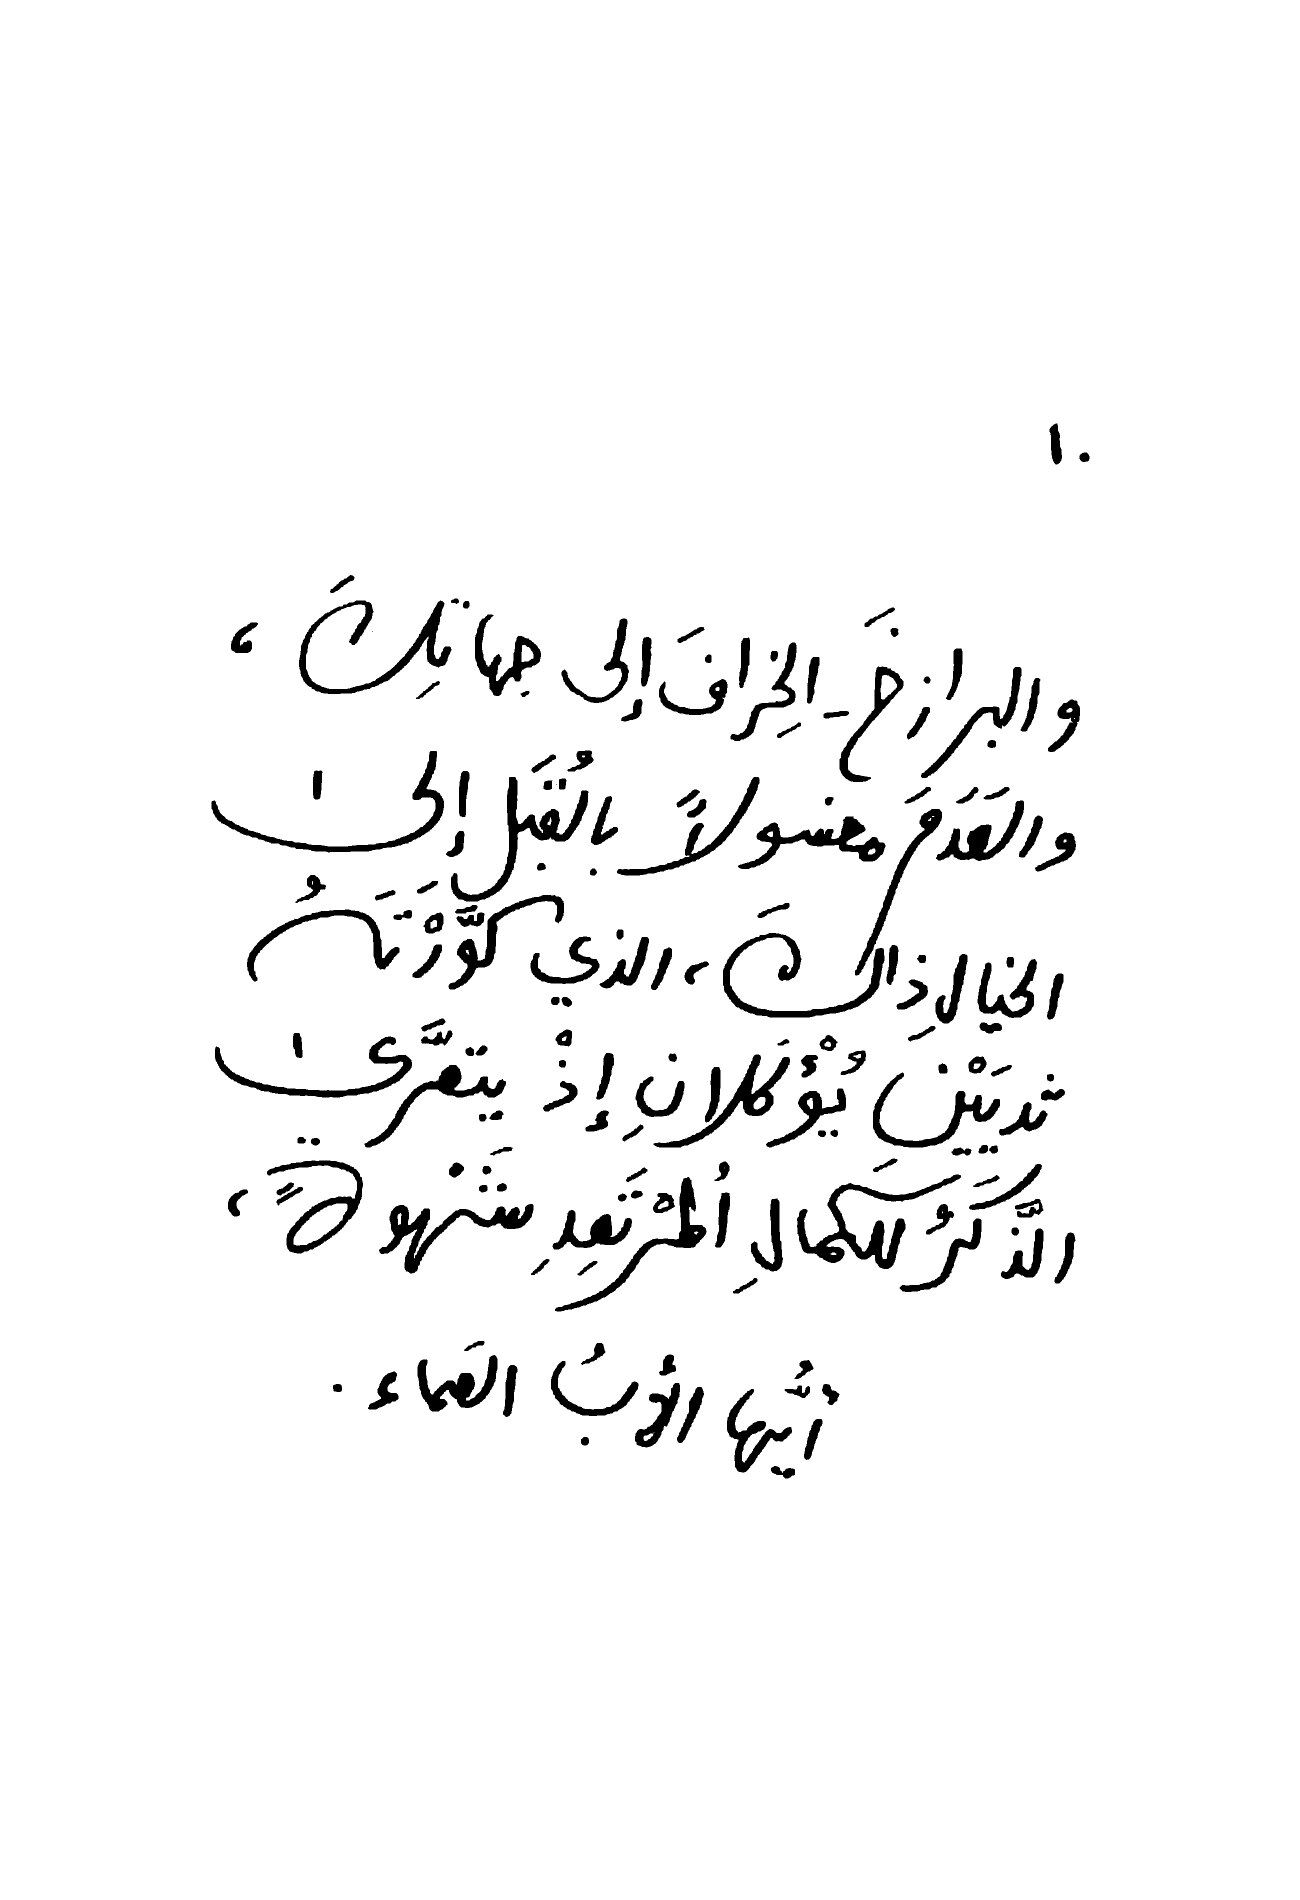 ١٠
والبرازخَ - الخِرافَ إلى جهاتِكَ،
والعَدَمَ مغسولاً بالقُبَلِ إلى
الخيالِ ذاكَ، الذي كوَّرْتَهُ
ثديَيْنِ يُؤْكَلانِ إذْ يتعرَّى
الذَّكَرُ للكمالِ المُرْتَعِدِ شَهْوةً،
أيُّها الأبُ العماء.